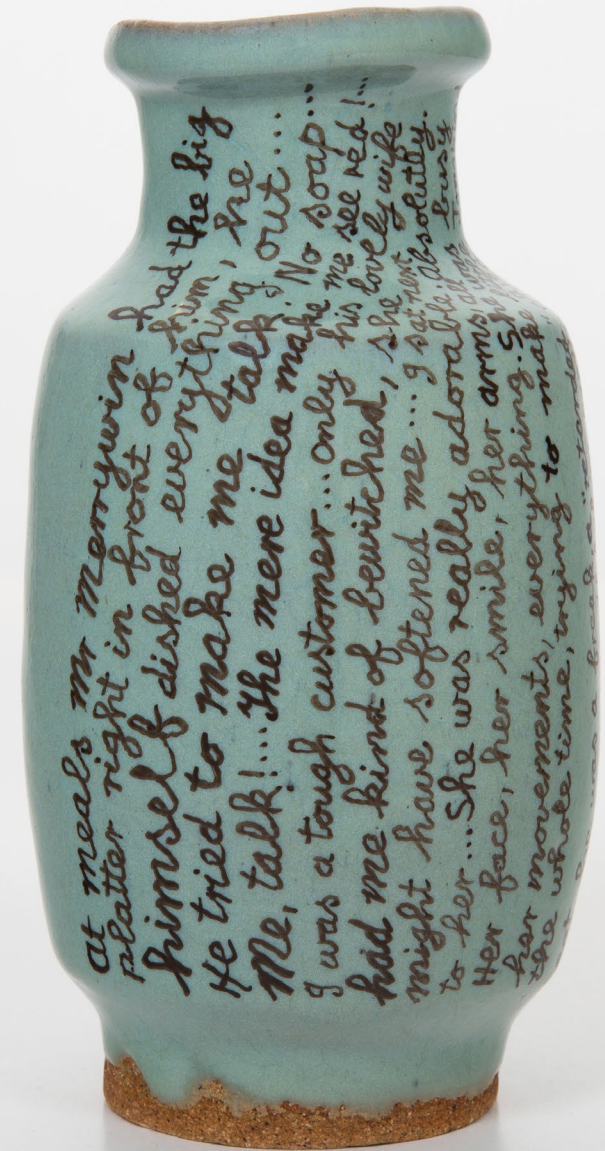 at meals mr merrywin had the big
platter right in front of him, he
himself dished everything out...
He tried to make me talk. No soap...
Me, talk!...The mere idea make me see red!...
I was a tough customer...only his lovely wife
had me kind of bewitched, she
might have softened me...I sat next
to her...She was really adorable. Absolutly.
Her face, her smile, her arms, all
her movements, everything. She busy
the whole time, trying to make
was a